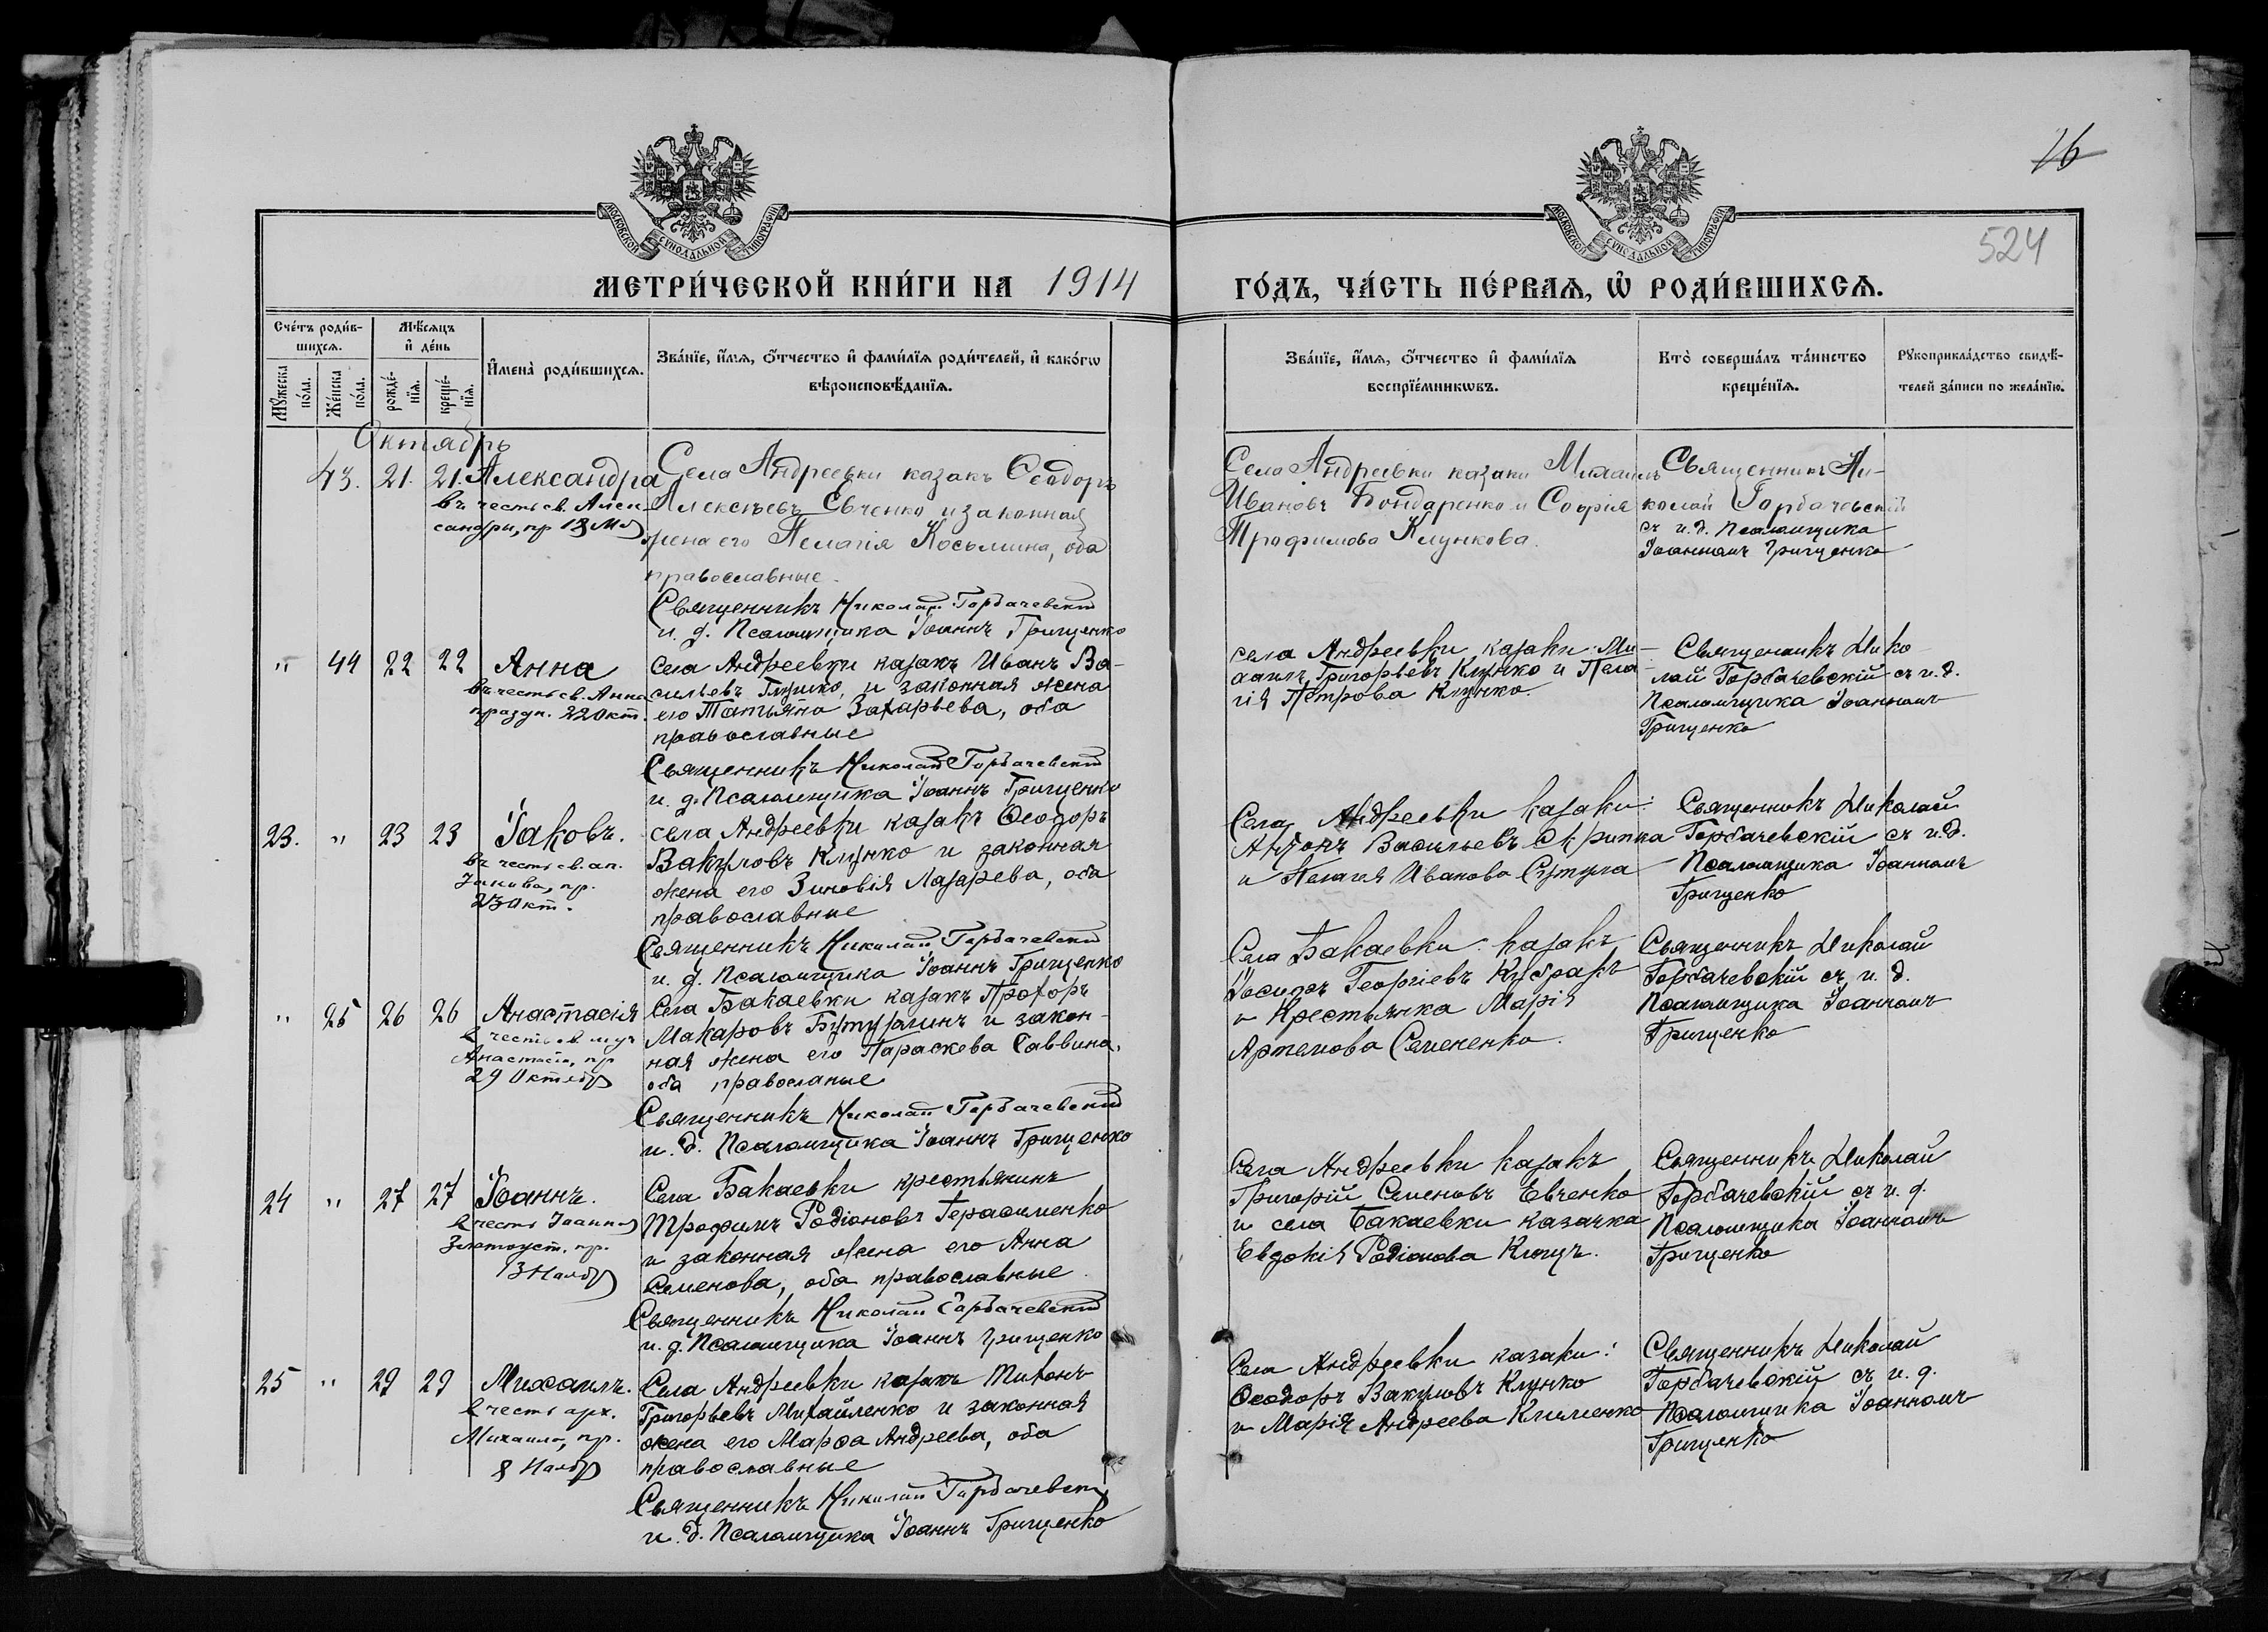 16
524
МОСКОВСКОЙ СѴНОДАЛЬНОЙ ТИПОГРАФІИ
МОСКОВСКОЙ СѴНОДАЛЬНОЙ ТИПОГРАФІИ
МЕТРИ́ЧЕСКОЙ КНИ́ГИ НА 1914 ГО́ДЪ, ЧА́СТЬ ПЕ́РВАѦ, Ѡ҆ РОДИ́ВШИХСѦ.
Сче́тъ роди́в-
шихсѧ.
Мѣ́сѧцъ
и҆ де́нь
Мꙋ́жеска
по́ла.
Же́нска
по́ла.
рожде́-
нїѧ.
креще́-
нїѧ.
И҆мена̀ роди́вшихсѧ.
Зва́нїе, и҆́мѧ, ѻ҆́тчество и҆ фами́лїѧ роди́телей, и҆ како́гѡ
вѣроисповѣ́данїѧ.
Зва́нїе, и҆́мѧ, ѻ҆́тчество и҆ фами́лїѧ
воспрїе́мникѡвъ.
Кто̀ соверша́лъ та́инство
креще́нїѧ.
Рꙋкоприкла́дство свидѣ́-
телей за́писи по жела́нїю.
Октябрь
43. 21. 21. Александра
въ честь св. Алек-
сандры, пр 18 Мая
Села Андреевки казакъ Ѳеодоръ
Алексѣевъ Евченко и законная
жена его Пелагія Косьмина, оба
православные.
Священникъ Николай Горбачевскій
и. д. Псаломщика Іоаннъ Грищенко
Села Андреевки казаки Михаилъ
Ивановъ Бондаренко и Софія
Трофимова Клункова.
Священникъ Ни-
колай Горбачевскій
съ и. д. Псаломщика
Іоанномъ Грищенко
" 44 22 22 Анна
въ честь св. Анны
праздн. 22 Окт.
села Андреевки казакъ Иванъ Ва-
сильевъ Глушко, и законная жена
его Татьяна Захарьева, оба
православные
Священникъ Николай Горбачевскій
и. д. Псаломщика Іоаннъ Грищенко
села Андреевки казаки: Ми-
хаилъ Григорьевъ Клунко и Пела-
гія Петрова Клунко.
Священникъ Нико-
лай Горбачевскій съ и. д.
Псаломщика Іоанномъ
Грищенко
23. " 23 23 Іаковъ.
въ честь св. ап.
Іакова, пр.
23 Окт.
села Андреевки казакъ Ѳеодоръ
Вакуловъ Клунко и законная
жена его Зиновія Лазарева, оба
православные
Священникъ Николай Горбачевскій
и. д. Псаломщика Іоаннъ Грищенко
Села Андреевки казаки:
Антонъ Васильевъ Скрипка
и Пелагія Иванова Сутула
Священникъ Николай
Горбачевскій съ и. д.
Псаломщика Іоанномъ
Грищенко
" 25 26 26 Анастасія
въ честь св. муч
Анастасіи, пр
29 Октября
Села Бакаевки казакъ Прохоръ
Макаровъ и закон-
ная жена его Параскева Саввина,
оба правосланые
Священникъ Николай Горбачевскій
и. д. Псаломщика Іоаннъ Грищенко
Села Бакаевки: казакъ
Іосифъ Георгіевъ Кубракъ
и Крестьянка Марія
Артемова Семененко.
Священникъ Николай
Горбачевскій съ и. д.
Псаломщика Іоанномъ
Грищенко
24 " 27 27 Іоаннъ.
въ честь Іоанна
Златоуст. пр.
13 Ноября
Села Бакаевки крестьянинъ
Трофимъ Родіоновъ Герасименко
и законная жена его Анна
Семенова, оба православные.
Священникъ Николай Горбачевскій
и. д. Псаломщика Іоаннъ Грищенко
Села Андреевки казакъ
Григорій Семеновъ Евченко
и села Бакаевки казачка
Евдокія Родіонова Клющъ.
Священникъ Николай
Горбачевскій съ и. д.
Псаломщика Іоанномъ
Грищенко
25 " 29 29 Михаилъ.
въ честь арх.
Михаила, пр.
8 Ноября
Села Андреевки казакъ Тихонъ
Григорьевъ Михайленко и законная
жена его Марѳа Андреева, оба
православные
Священникъ Николай Горбачевскій
и. д. Псаломщика Іоаннъ Грищенко
Села Андреевки казаки:
Ѳеодоръ Вакуловъ Клунко
и Марія Андреева Клименко
Священникъ Николай
Горбачевскій съ и. д.
Псаломщика Іоанномъ
Грищенко